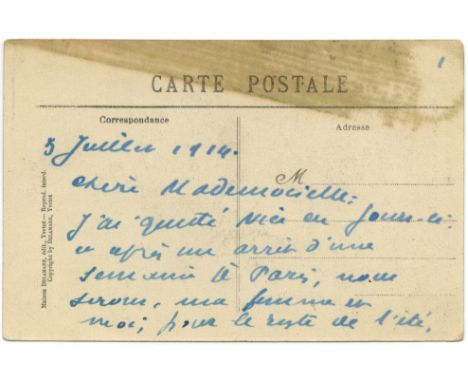 1
CARTE POSTALE
Correspondance
Adresse
M
3 Juillet 1914.
Chère Mademoiselle,
J'ai quitté Nice ces jours-ci
et après un arrêt d'une
semaine à Paris, nous
serons, ma femme et
moi, pour le reste de l'été,
Maison DELAMARE, édit., Yvetot — Reprod. interd.
Copyright by DELAMARE, Yvetot